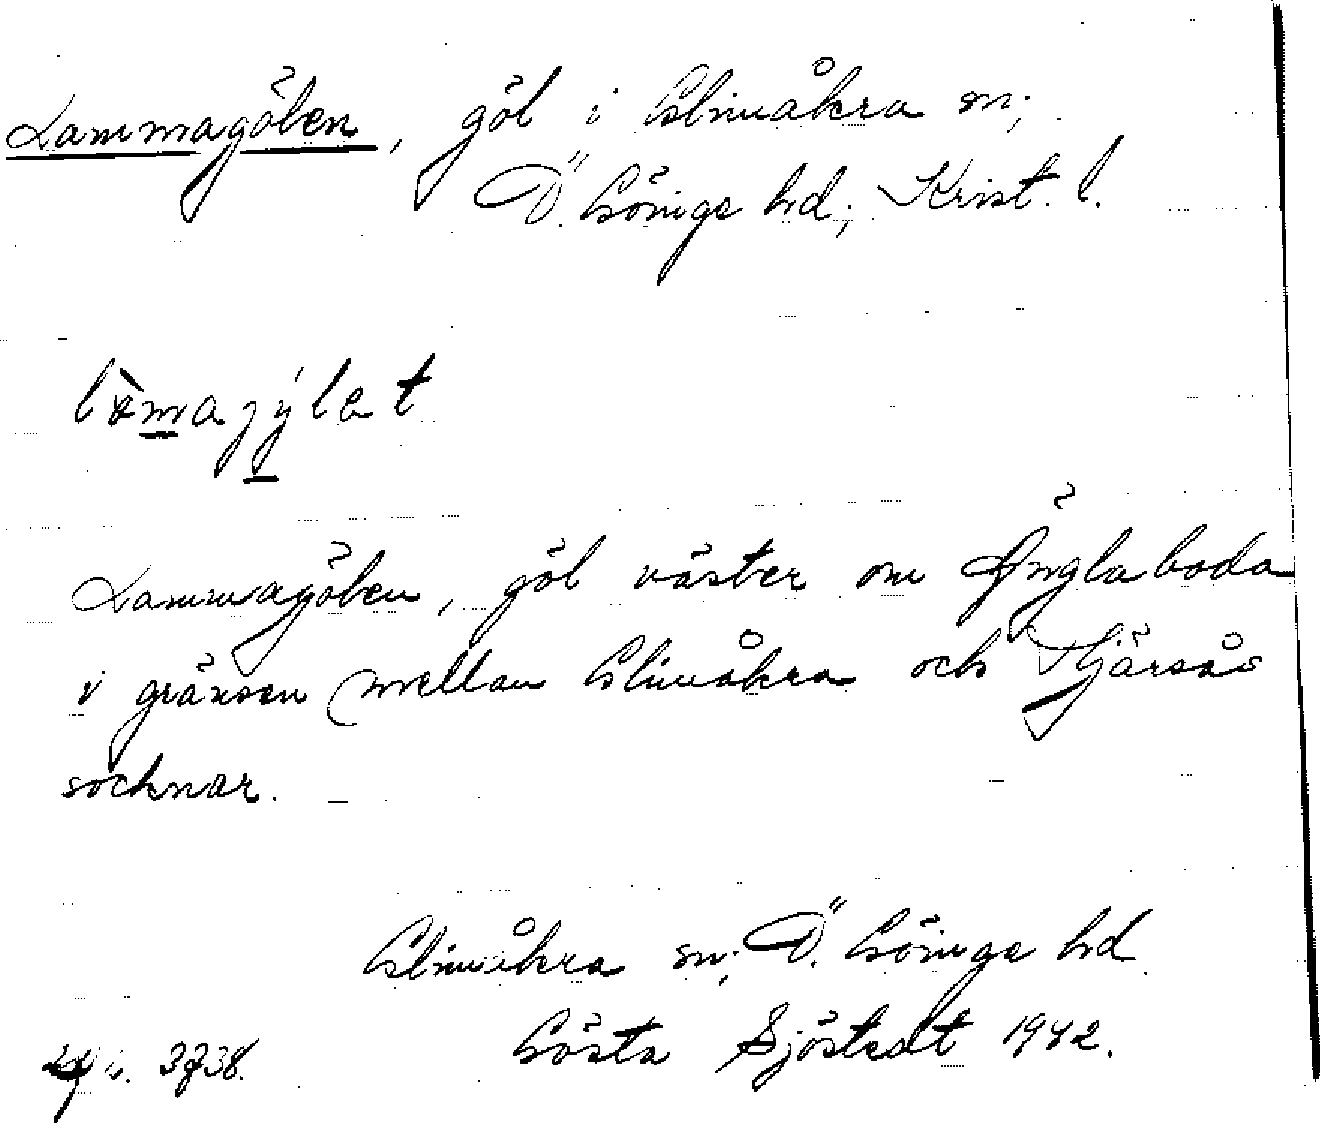 Lammagölen, göl i Glimåkra sn;
Ö. Göinge hd; Krist. l.
Lammagölen, göl väster om Änglaboda
i gränsen mellan Glimåkra och Hjärsås
socknar.
Glimåkra sn; Ö. Göinge hd
3738. Gösta Sjöstedt 1942.